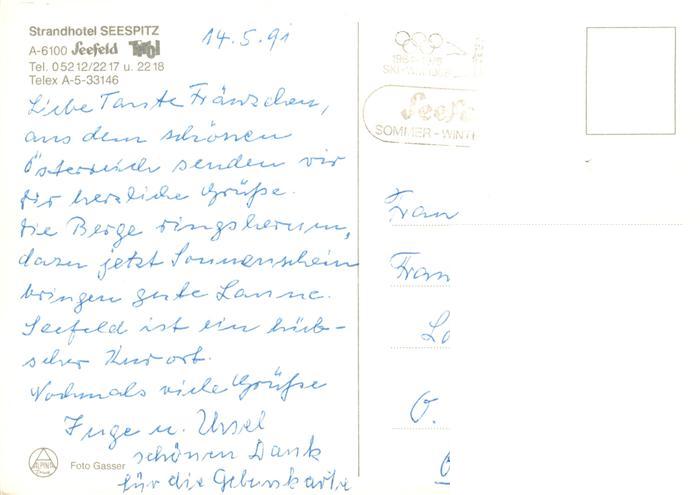 Strandhotel SEESPITZ
A-6100 Seefeld Tirol
Tel. 05212/2217 u. 2218
Telex A-5-33146
14.5.91
Liebe Tante Fränzchen,
aus dem schönen
Österreich senden wir
Dir herzliche Grüße.
Die Berge ringsherum,
dazu jetzt Sonnenschein
bringen gute Laune.
Seefeld ist ein hüb-
scher Kurort.
Nochmals viele Grüße
Inge u. Ursel
schönen Dank
für die Geb
ALPINA
Foto Gasser
SOMMER - WINTE
Frau
Fran
Lo
O.